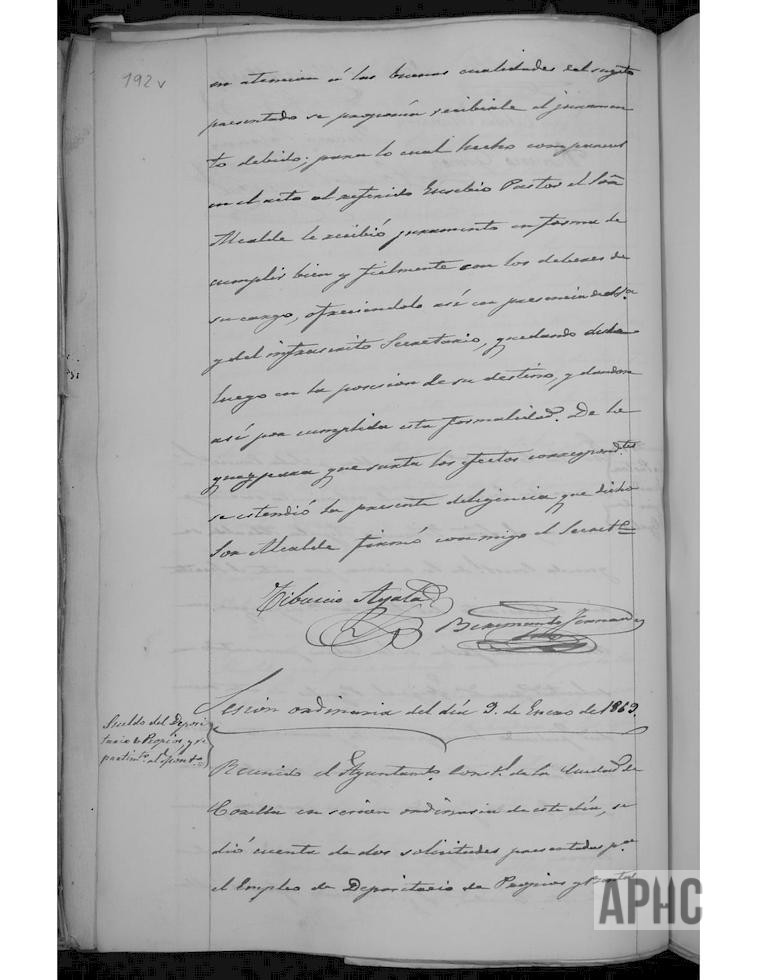 192 v
en atencion á las buenas cualidades del sugeto
presentado se proponia recibirle el juramen
to debido; para lo cual hecho comparecer
en el acto al referido Eusebio Pastor el Sõr
Alcalde le recibió juramento en forma de
cumplir bien y fielmente con los deberes de
su cargo, ofreciendolo así en presencia de
y del infrascrito Secretario, quedando desde
luego en la posesion de su destino, y dandose
asi por cumplida esta formalidad. De lo
que y para que surta los efectos correspond.tes
se estendió la presente diligencia que dicho
Sor Alcalde firmó conmigo el Secret.º=
Tiburcio Ayala
Sesion ordinaria del dia 9. de Enero de 1869.
Sueldo del Deposi
tario de Propios y re
Reunido el Ayuntam.to Const.l de la Ciudad de
Corella en sesion ordinaria de este dia, se
dió cuenta de dos solicitudes presentadas p.a
el Empleo de Depositario de Propios y
APHC